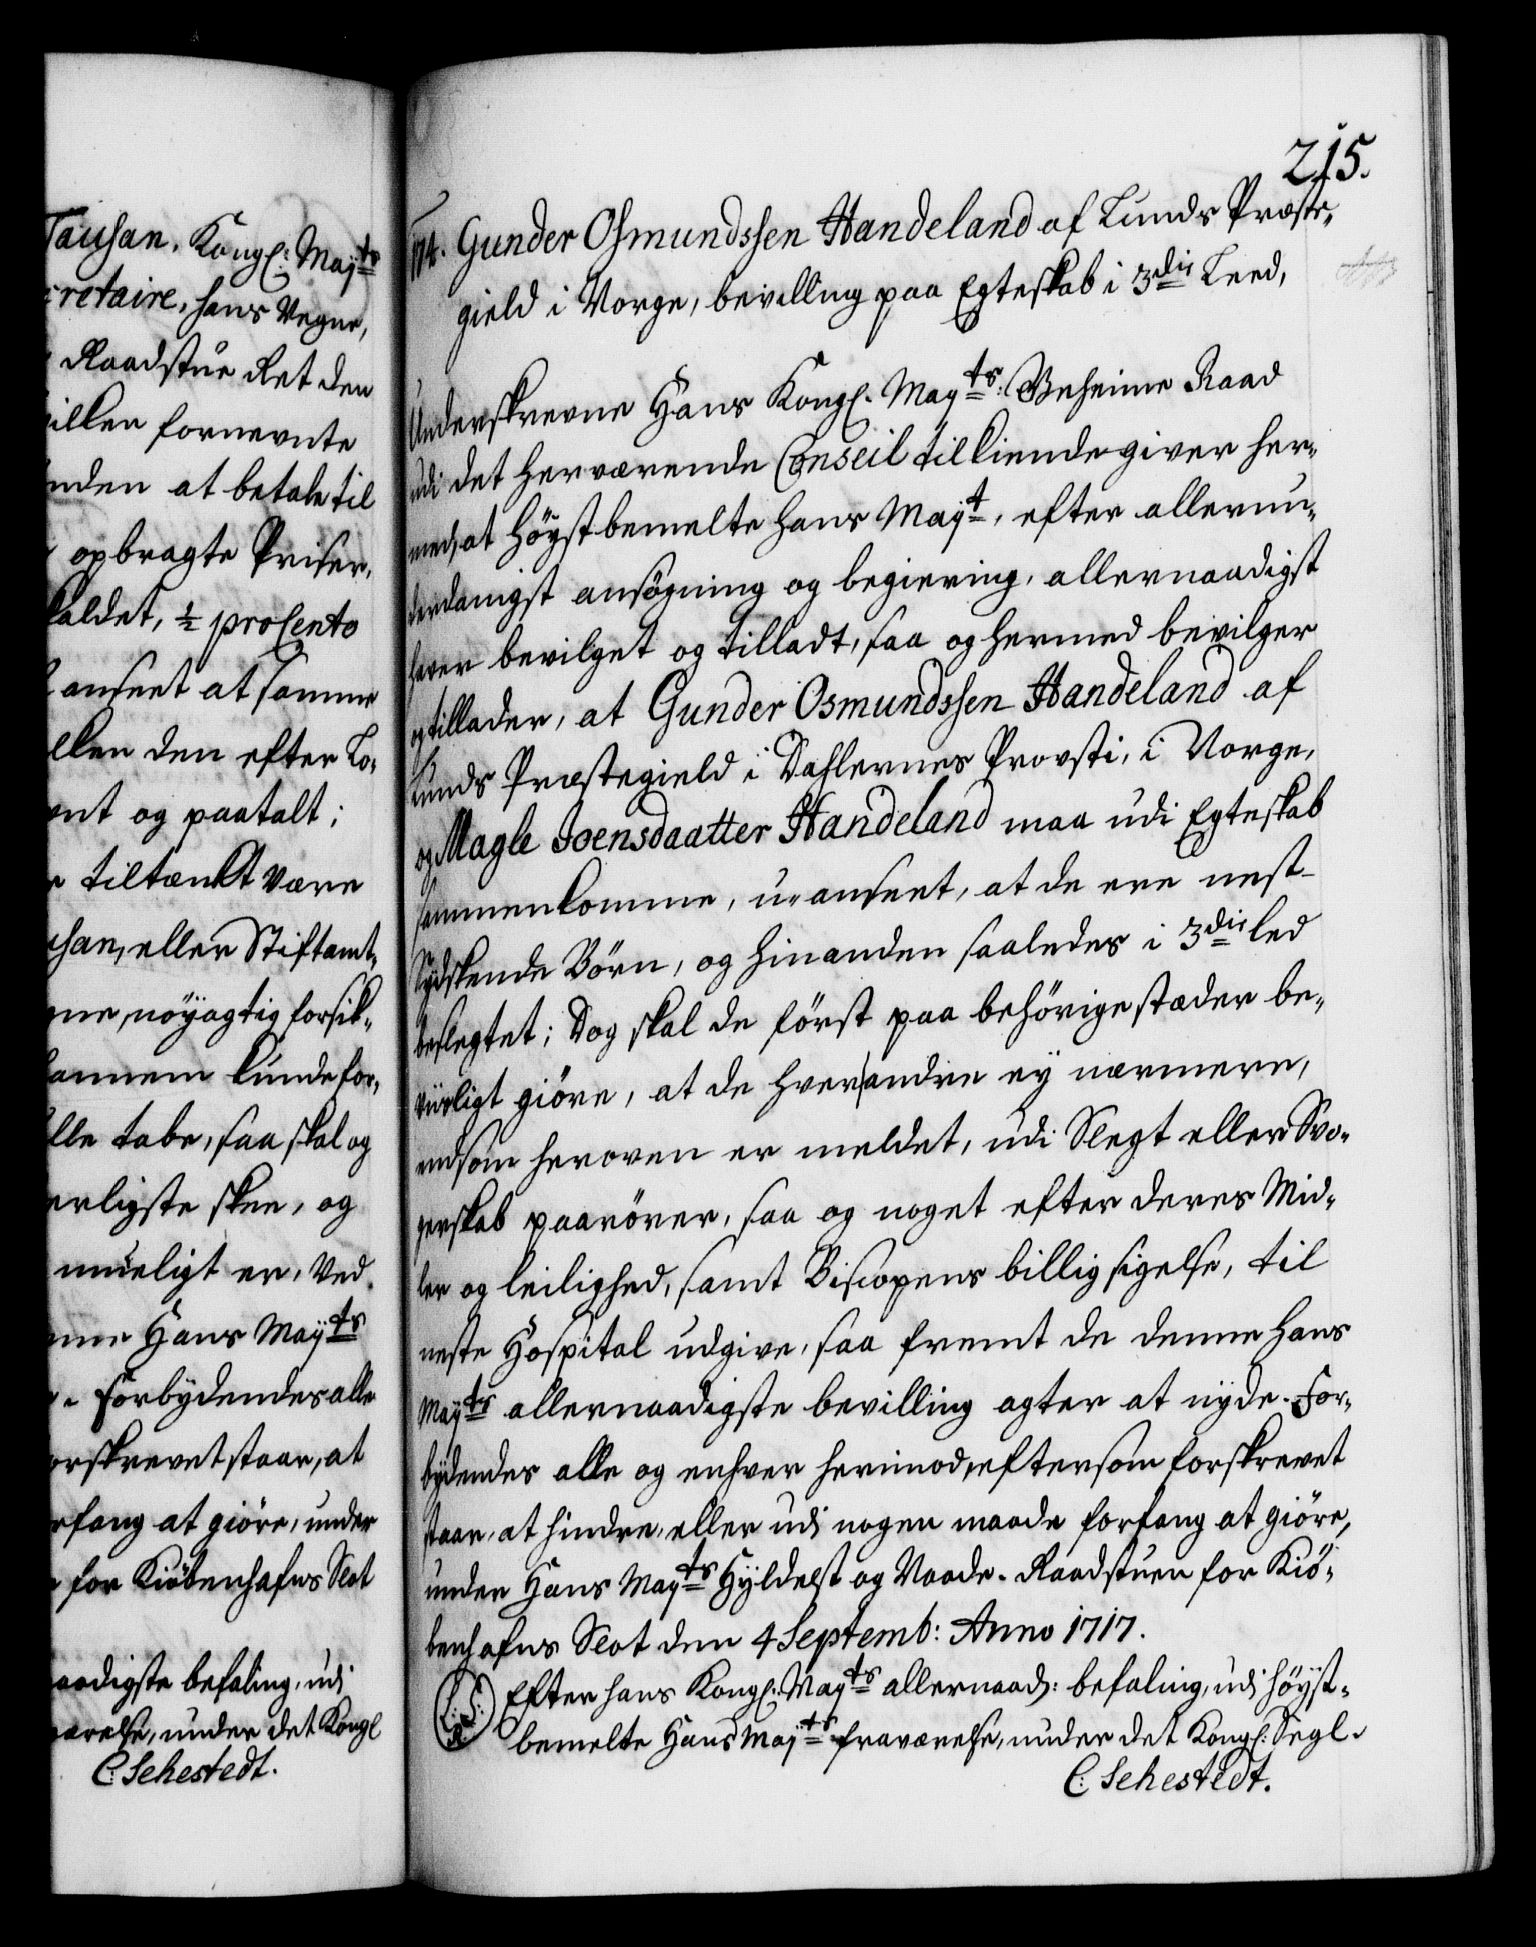 Tausan, Kongl: Majts
cretaire, hans Vegne,
Raadstue Ret den
villen fornevnte
nden at betale til
opbragte Priser,
kaldet, ½ proCento
anseet at samme
ellen den efter Lo-
vnt og paatalt;
tiltænkt være
usan, eller Stiftamt-
gne, nöyagtig forsik-
hannem kunde for-
lle tabe, saa skal og
erligste skee, og
mueligt er, Ved
nne Hans Mayts
Forbydendes alle
orskrevet staar, at
rfang at giöre, under
for Kiöbenhafns Slot
aadigste befaling, udi
værelse, under det Kongl
C: Sehestedt.
215.
174. Gunder Osmundssen Handeland af Lunds Præste-
gield i Norge, bevilling paa Egteskab i 3die Leed,
Underskrevne Hans Kongl. Mayts: Geheime Raad
udi det herværende Conseil tilkiende giver her-
med, at höystbemelte Hans Mayt, efter allerun-
derdanigst ansögning og begiering, allernaadigst
haver bevilget og tilladt, saa og hermed bevilger
og tillader, at Gunder Osmundssen Handeland af
Lunds Præstegield i Dahlernes Provsti, i Norge,
og Magle Joensdaatter Handeland maa udi Egteskab
sammenkomme, u-anseet, at de ere nest-
Sydskende Börn, og hinanden saaledes i 3die led
beslegtet; Dog skal de först paa behörige stæder be-
viisligt giöre, at de hverandre ey nærmere,
end som heroven er meldet, udi Slegt eller Svo-
gerskab paarörer, saa og noget efter deres Mid-
ler og leilighed, samt Biscopens billigsigelse, til
neste Hospital udgive, saa fremt de denne Hans
Mayts allernaadigste bevilling agter at nyde. For-
bydendes alle og enhver herimod, eftersom forskrevet
staar, at hindre, eller udi nogen maade forfang at giöre,
under Hans Mayts Hyldest og Naade. Raadstuen for Kiö-
benhafns Slot den 4 Septemb: Anno 1717.
L: S:
R.
Efter hans Kongl. Mayts allernaad: befaling, udi höyst-
bemelte Hans Majts fraværelse, under det Kongl: Segl.
C: Sehestedt.